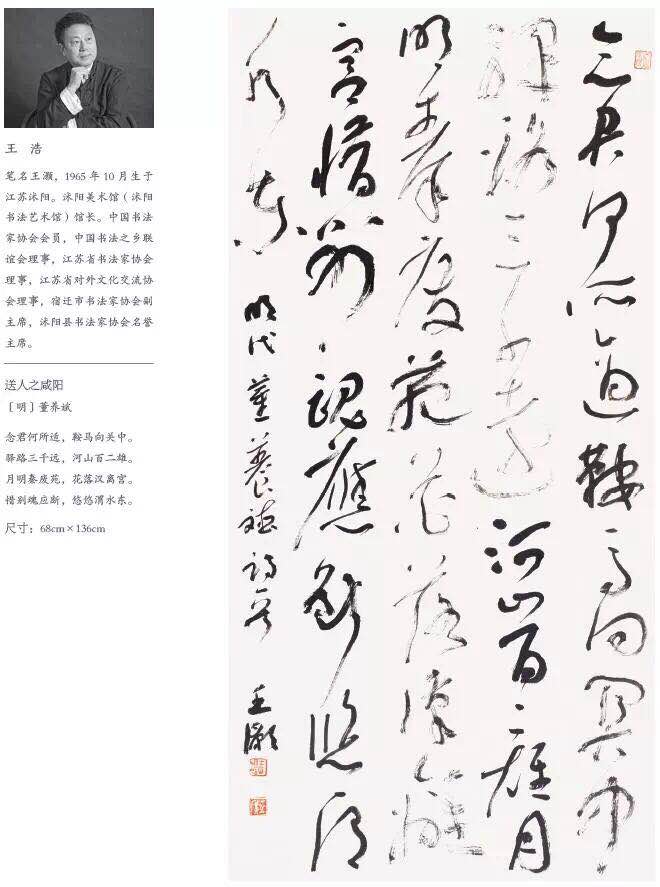 王 浩
笔名王灏，1965 年 10 月生于
江苏沭阳。沭阳美术馆（沭阳
书法艺术馆）馆长。中国书法
家协会会员，中国书法之乡联
谊会理事，江苏省书法家协会
理事，江苏省对外文化交流协
会理事，宿迁市书法家协会副
主席，沭阳县书法家协会名誉
主席。
送人之咸阳
［明］董养斌
念君何所适，鞍马向关中。
驿路三千远，河山百二雄。
月明秦废苑，花落汉离宫。
惜别魂应断，悠悠渭水东。
尺寸：68cm×136cm
念君何所適鞍马向関中
驛路三千远河山百二雄月
明秦廢苑花落漢離
宫惜别魂應斷悠渭
水东
明代董養斌詩一首
王灏